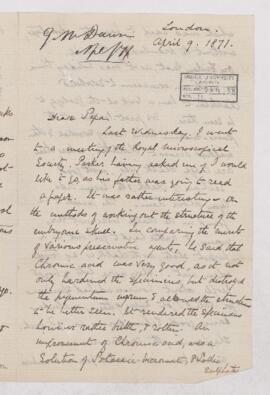 London.
April 9. 1871.
Dear Papa
Last Wednesday, I went
to a meeting of the Royal Microscopical
Society, Parker having asked me if I would
like to go, as his father was going to read
a paper. It was rather interesting - on
the methods of working out the structure of the
embryonic skull. In comparing the merits
of various preservative agents, he said that
Chromic acid was very good, as it not
only hardened the specimens, but destroyed
the pigmentum nigrum & allowed the structure
to be better seen. It rendered the specimens
however rather brittle, & rotten. An
improvement of Chromic acid, was a
Solution of Potassic-bicromate, & Sodic
sulphate